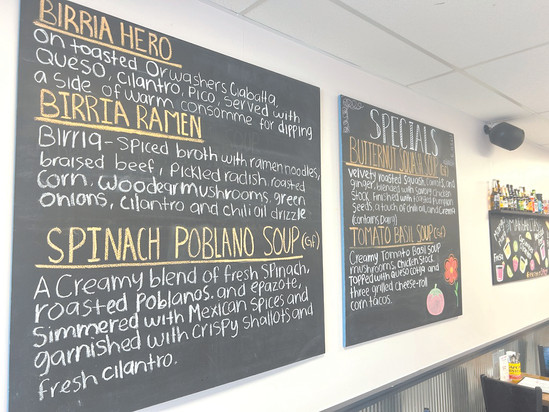 BIRRIA HERO
on toasted Orwashers Ciabatta,
Queso, cilantro, Pico, served with
a side of warm consomme for dipping
BIRRIA RAMEN
Birria-spiced broth with ramen noodles,
braised beef, pickled radish, roasted
corn, woodear mushrooms, green
onions, cilantro and chili oil drizzle
SPINACH POBLANO SOUP (GF)
A Creamy blend of fresh spinach,
roasted Poblanos, and epazote,
Simmered with Mexican spices and
garnished with crispy shallots and
fresh cilantro.
SPECIALS
BUTTERNUT SQUASH SOUP (GF)
velvety roasted squash, carrots, and
ginger, blended with savory chicken
stock, finished with roasted pumpkin
seeds, a touch of chili oil, and crema
(contains dairy)
TOMATO BASIL SOUP (GF)
Creamy Tomato Basil soup
mushrooms, chicken stock,
topped with queso cotija and
three grilled cheese-roll
corn tacos.